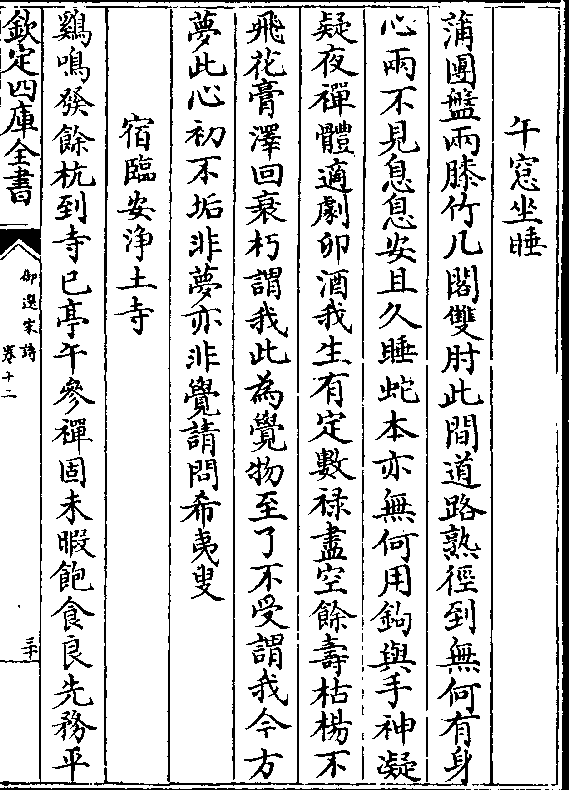 午窓坐睡
蒲團盤兩膝竹几閣雙肘此間道路熟徑到無何有身
心兩不見息息安且久睡蛇本亦無何用鉤與手神凝
疑夜禪體適劇卯酒我生有定數禄盡空餘壽枯楊不
飛花膏澤回衰朽謂我此為覺物至了不受謂我今方
夢此心初不垢非夢亦非覺請問希夷叟
宿臨安浄土寺
鷄鳴發餘杭到寺已亭午參禪固未暇飽食良先務平
欽定四庫全書
御選宋詩
卷十二
三十